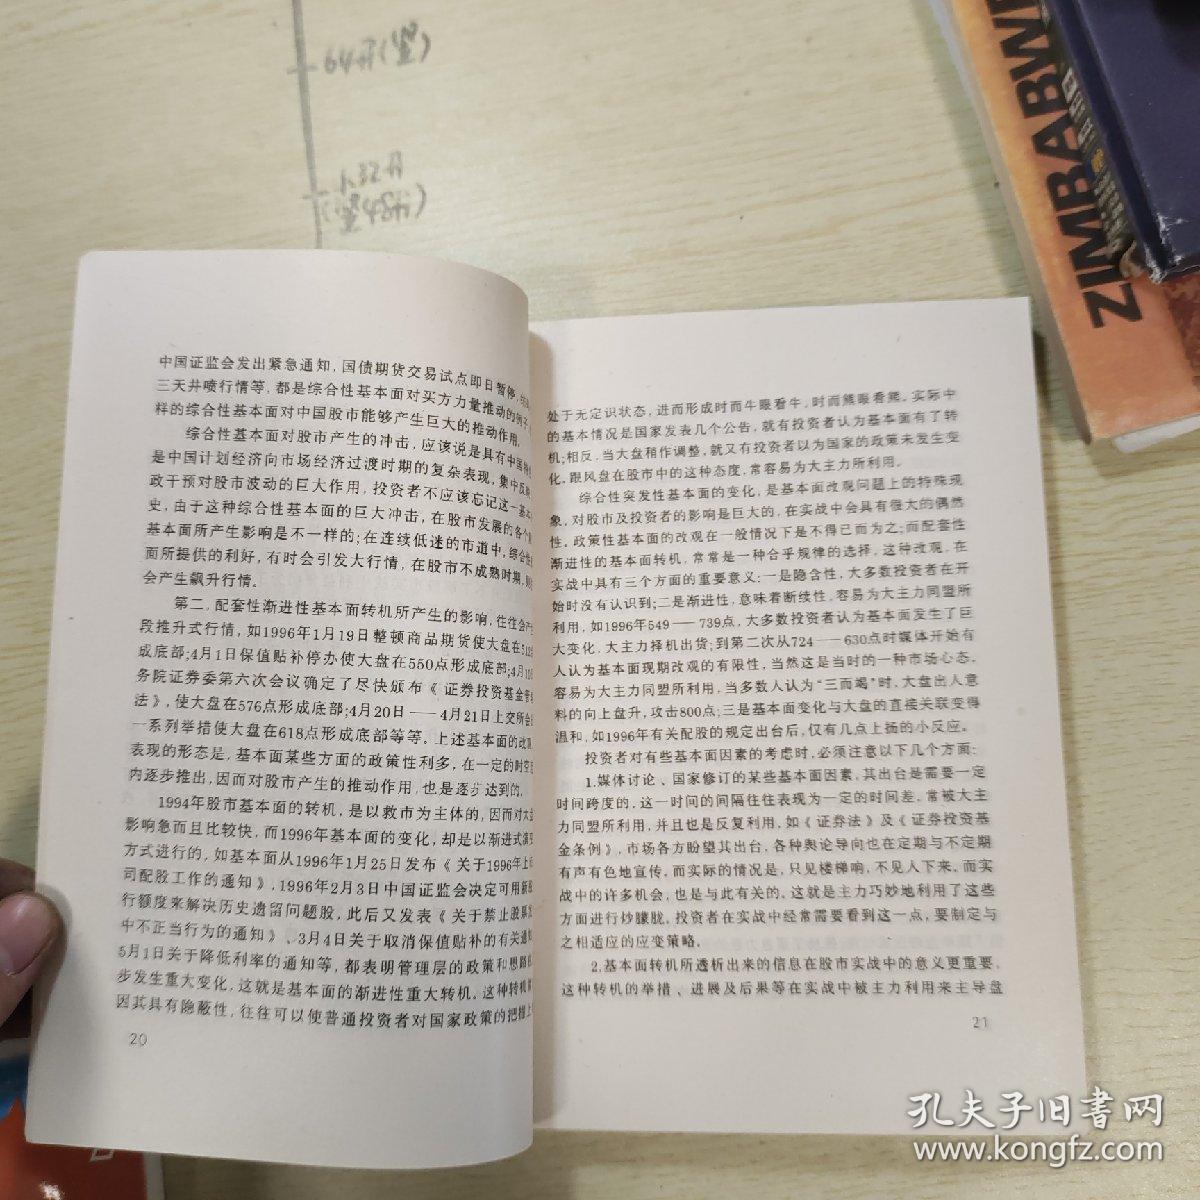 64开(
132开
48
ZIMBABWE
中国证监会发出紧急通知，国债期货交易试点即日暂停，
三天井喷行情等，都是综合性基本面对买方力量推动的例子，
样的综合性基本面对中国股市能够产生巨大的推动作用。
综合性基本面对股市产生的冲击，应该说是具有中国特
是中国计划经济向市场经济过渡时期的复杂表现，集中反映
政干预对股市波动的巨大作用，投资者不应该忘记这一基本
史，由于这种综合性基本面的巨大冲击，在股市发展的各个
基本面所产生影响是不一样的；在连续低迷的市道中，综合性
面所提供的利好，有时会引发大行情，在股市不成熟时期，则
会产生飙升行情。
第二，配套性渐进性基本面转机所产生的影响，往往会产
段推升式行情，如1996年1月19日整顿商品期货使大盘在51
成底部；4月1日保值贴补停办使大盘在550点形成底部；4月1
务院证券委第六次会议确定了尽快颁布《证券投资基金管
法》，使大盘在576点形成底部；4月20日——4月21日上交所会
一系列举措使大盘在618点形成底部等等。上述基本面的改
表现的形态是，基本面某些方面的政策性利多，在一定的时空
内逐步推出，因而对股市产生的推动作用，也是逐步达到的。
1994年股市基本面的转机，是以救市为主体的，因而对大
影响急而且比较快，而1996年基本面的变化，却是以渐进式演变
方式进行的，如基本面从1996年1月25日发布《关于1996年上
司配股工作的通知》，1996年2月3日中国证监会决定可用新
行额度来解决历史遗留问题股，此后又发表《关于禁止股票发
中不正当行为的通知》、3月4日关于取消保值贴补的有关通知
5月1日关于降低利率的通知等，都表明管理层的政策和思路
步发生重大变化，这就是基本面的渐进性重大转机。这种转机
因其具有隐蔽性，往往可以使普通投资者对国家政策的把握上
20
处于无定识状态，进而形成时而牛眼看牛，时而熊眼看熊。实际中
的基本情况是国家发表几个公告，就有投资者认为基本面有了转
机；相反，当大盘稍作调整，就又有投资者以为国家的政策未发生变
化，跟风盘在股市中的这种态度，常容易为大主力所利用。
综合性突发性基本面的变化，是基本面改观问题上的特殊现
象，对股市及投资者的影响是巨大的，在实战中会具有很大的偶然
性。政策性基本面的改观在一般情况下是不得已而为之；而配套性
渐进性的基本面转机，常常是一种合乎规律的选择，这种改观，在
实战中具有三个方面的重要意义：一是隐含性，大多数投资者在开
始时没有认识到；二是渐进性，意味着断续性，容易为大主力同盟所
利用，如1996年549——739点，大多数投资者认为基本面发生了巨
大变化，大主力择机出货；到第二次从724——630点时媒体开始有
人认为基本面现期改观的有限性，当然这是当时的一种市场心态，
容易为大主力同盟所利用，当多数人认为“三而竭”时，大盘出人意
料的向上盘升，攻击800点；三是基本面变化与大盘的直接关联变得
温和，如1996年有关配股的规定出台后，仅有几点上扬的小反应。
投资者对有些基本面因素的考虑时，必须注意以下几个方面：
1.媒体讨论、国家修订的某些基本面因素，其出台是需要一定
时间跨度的，这一时间的间隔往往表现为一定的时间差，常被大主
力同盟所利用，并且也是反复利用，如《证券法》及《证券投资基
金条例》，市场各方盼望其出台，各种舆论导向也在定期与不定期
有声有色地宣传，而实际的情况是，只见楼梯响，不见人下来，而实
战中的许多机会，也是与此有关的。这就是主力巧妙地利用了这些
方面进行炒朦胧。投资者在实战中经常需要看到这一点，要制定与
之相适应的应变策略。
2.基本面转机所透析出来的信息在股市实战中的意义更重要，
这种转机的举措、进展及后果等在实战中被主力利用来主导盘
21
孔夫子旧书网
www.kongfz.com